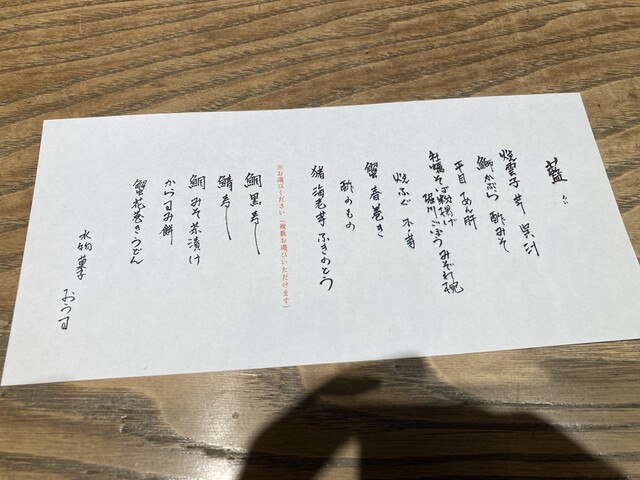 藍
らん
焼雲子 芹 呉汁
鰤かぶら 酢みそ
平目 あん肝
牡蠣そば粉揚げ
堀川ごぼう みぞれ椀
焼ふぐ 木ノ芽
蟹春巻き
酢のもの
猪 海老芋 ふきのとう
※お選びください(複数お選びいただけます)
鯛黒寿し
鯖寿し
鯛みそ茶漬け
からすみ餅
蟹花巻きうどん
水物 菓子
おうす